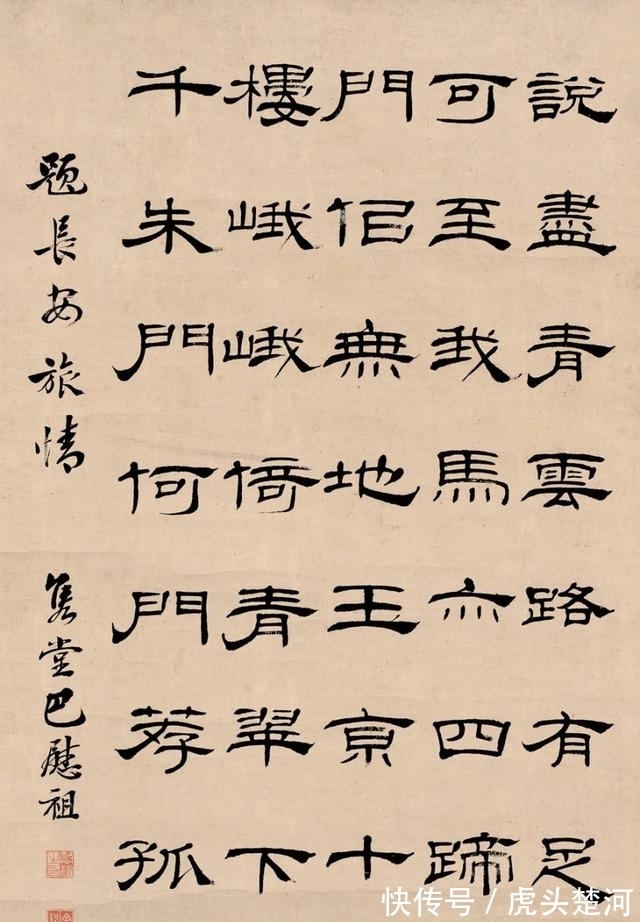 說盡青雲路有足
可至我馬亦四蹄
門佀無地王京十
樓峨峨倚青翠下
千朱門何門荐孤
題長安旅情 雋堂巴慰祖
快传号/虎头楚河